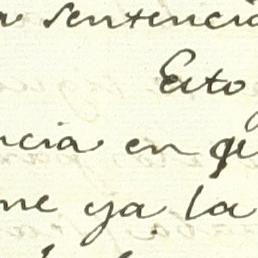 a sentencia
Esto
ncia en qu
ne ya la